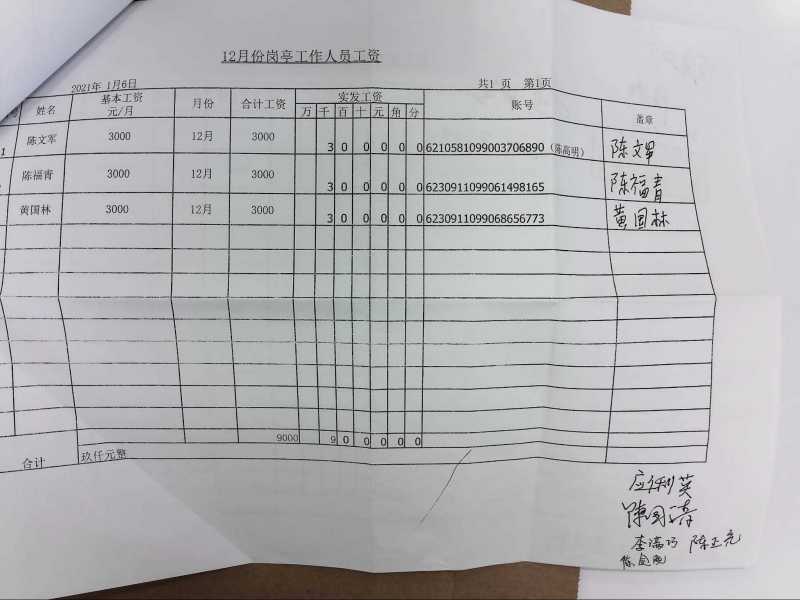 12月份岗亭工作人员工资
2021年 1月6日 共1 页 第1页
姓名 基本工资 元/月 月份 合计工资 实发工资 账号 盖章
万 千 百 十 元 角 分
1 陈文军 3000 12月 3000 3 0 0 0 0 0 6210581099003706890（陈高明） 陈文军
陈福青 3000 12月 3000 3 0 0 0 0 0 6230911099061498165 陈福青
黄国林 3000 12月 3000 3 0 0 0 0 0 6230911099068656773 黄国林
9000 9 0 0 0 0 0
合计 玖仟元整
陈国清
李满巧